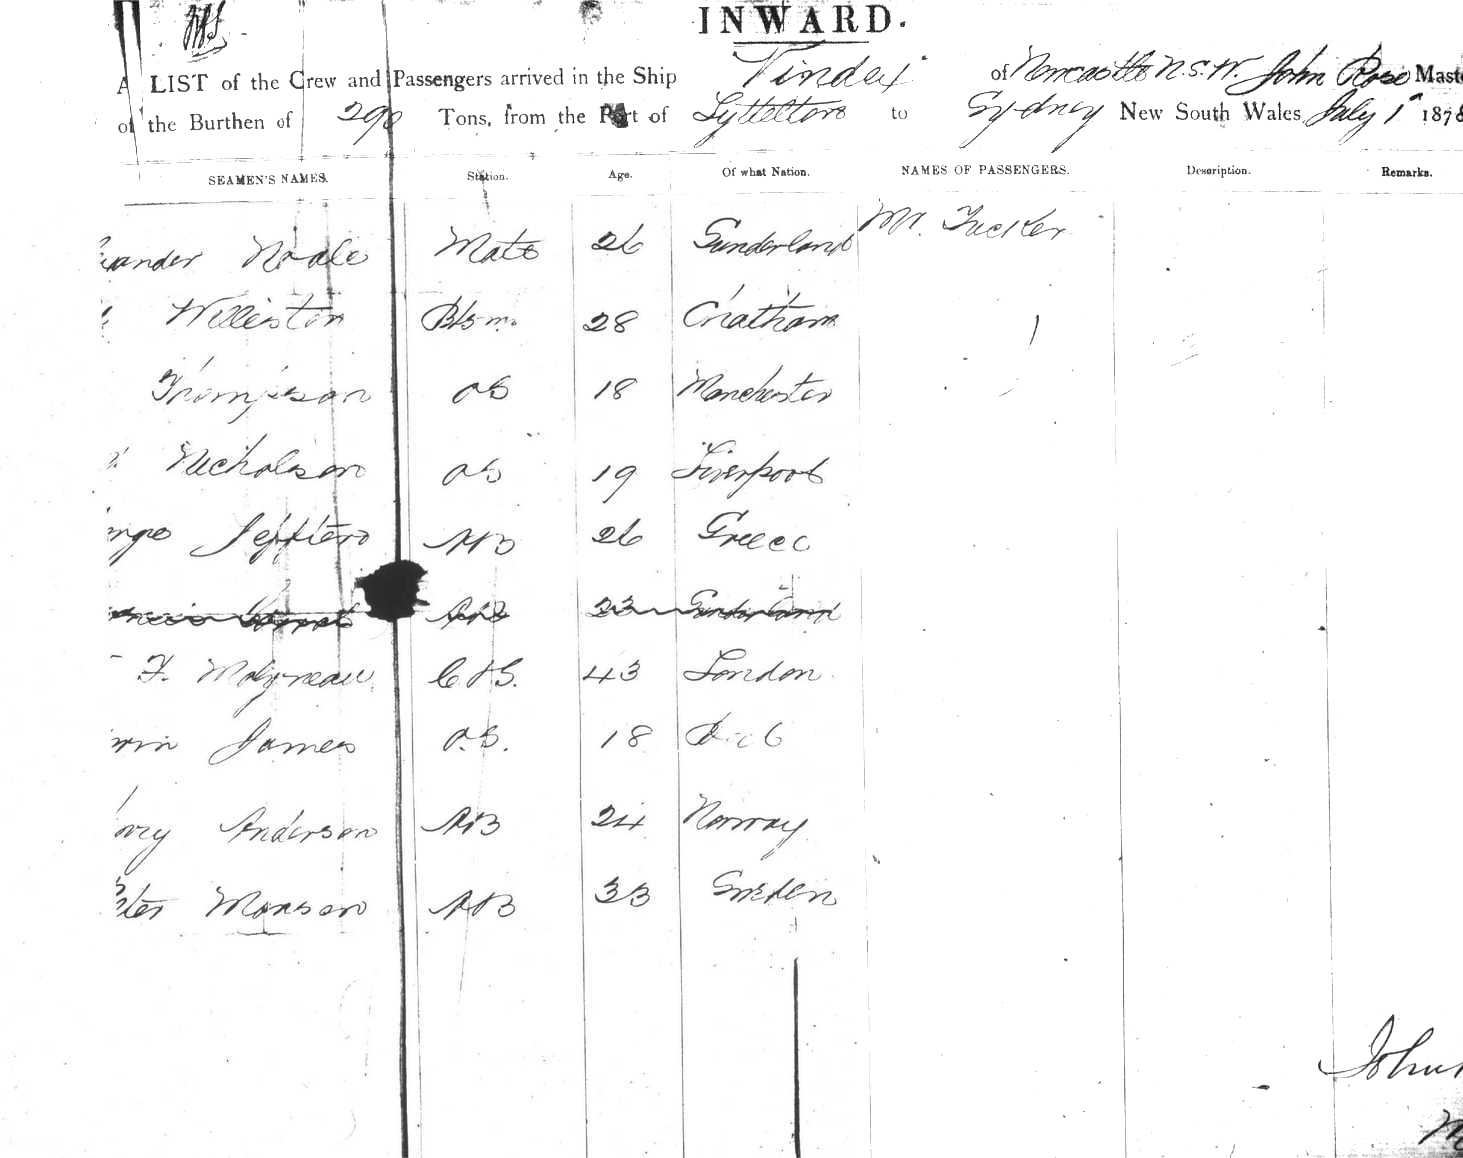 INWARD.
A LIST of the Crew and Passengers arrived in the Ship Vindex of Newcastle N.S.W. John Rose Maste
of the Burthen of 290 Tons, from the Port of Lyttelton to Sydney New South Wales, July 1st 1878
SEAMEN'S NAMES. Station. Age. Of what Nation. NAMES OF PASSENGERS. Description. Remarks.
Mr. Tucker
xander Mate 26 Sunderland
Williston Btsmn. 28 Chatham
Thompson OS 18 Manchester
Nicholson OS 19 Liverpool
AB 26 Greece
AB 23 Sunderland
F. Molyneau C&S. 43 London
win James O.S. 18
Anderson AB 24 Norway
eter Monson AB 33 Sweden
John